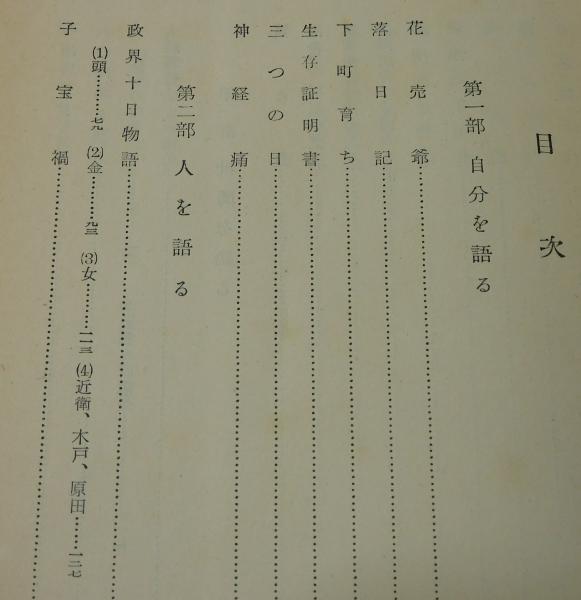 目次
第一部 自分を語る
花売爺……………………
落日記……………………
下町育ち……………………
生存証明書……………………
三つの日……………………
神経痛……………………
第二部 人を語る
政界十日物語……………………
⑴頭………七九 ⑵金………九三 ⑶女………一一三 ⑷近衛、木戸、原田……一二七
子宝禍……………………